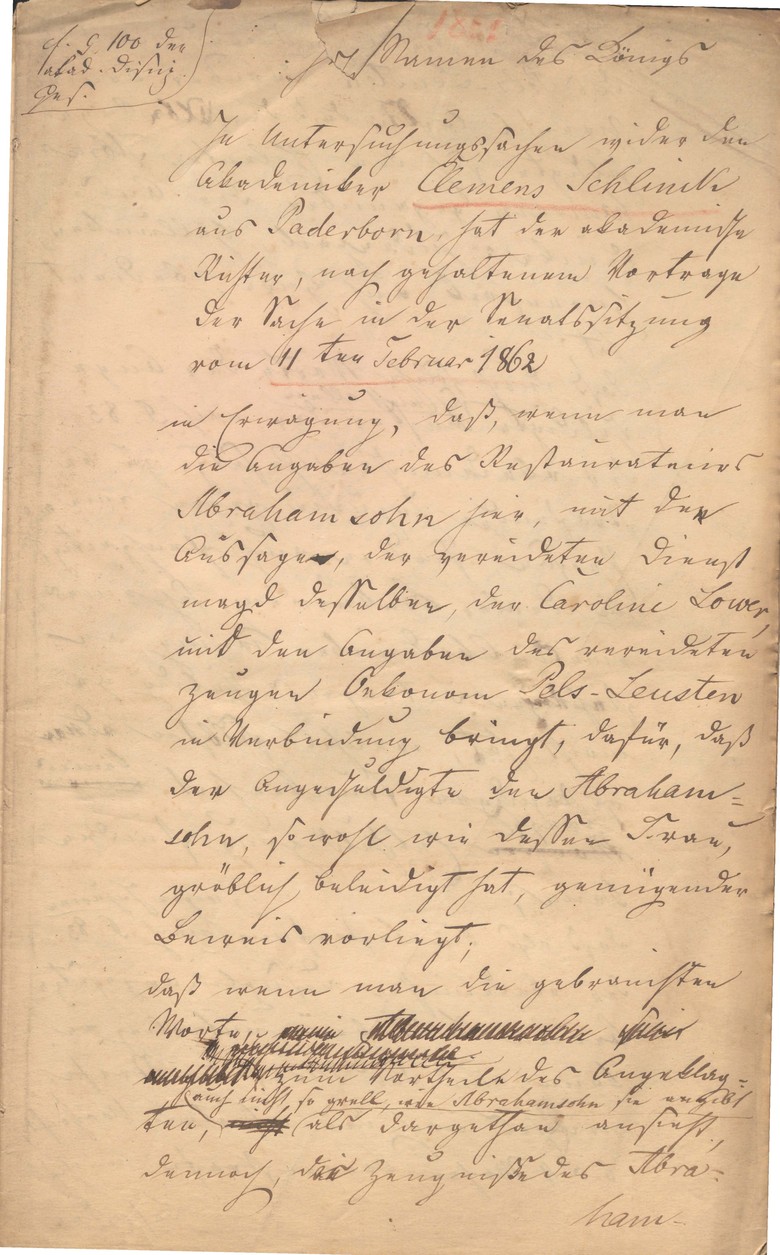 cf. § 100 der
akad. Discip.
Ges.
Im Namen des Königs
In Untersuchungssachen wider den
Akademiker Clemens Schlinck
aus Paderborn, hat der akademische
Richter, nach gehaltenem Vortrage
der Sache in der Senatssitzung
vom 11ten Februar 1862
in Erwägung, daß, wenn man
die Angaben des Restaurateurs
Abrahamsohn hier, mit der
Aussage, der vereideten Dienst
magd desselben, der Caroline Lower,
und den Angaben des vereideten
Zeugen Oekonom Pels-Leusten
in Verbindung bringt, dafür, daß
der Angeschuldigte den Abraham=
sohn, sowohl wie dessen Frau,
gröblich beleidigt hat, genügender
Beweis vorliegt;
daß wenn man die gebrauchten
Worte,
zum Vortheile des Angeklag=
auch nicht so grell, wie Abrahamsohn sie angibt
ten, als dargethan ansieht,
dennoch, die Zeugniße des Abra=
ham-